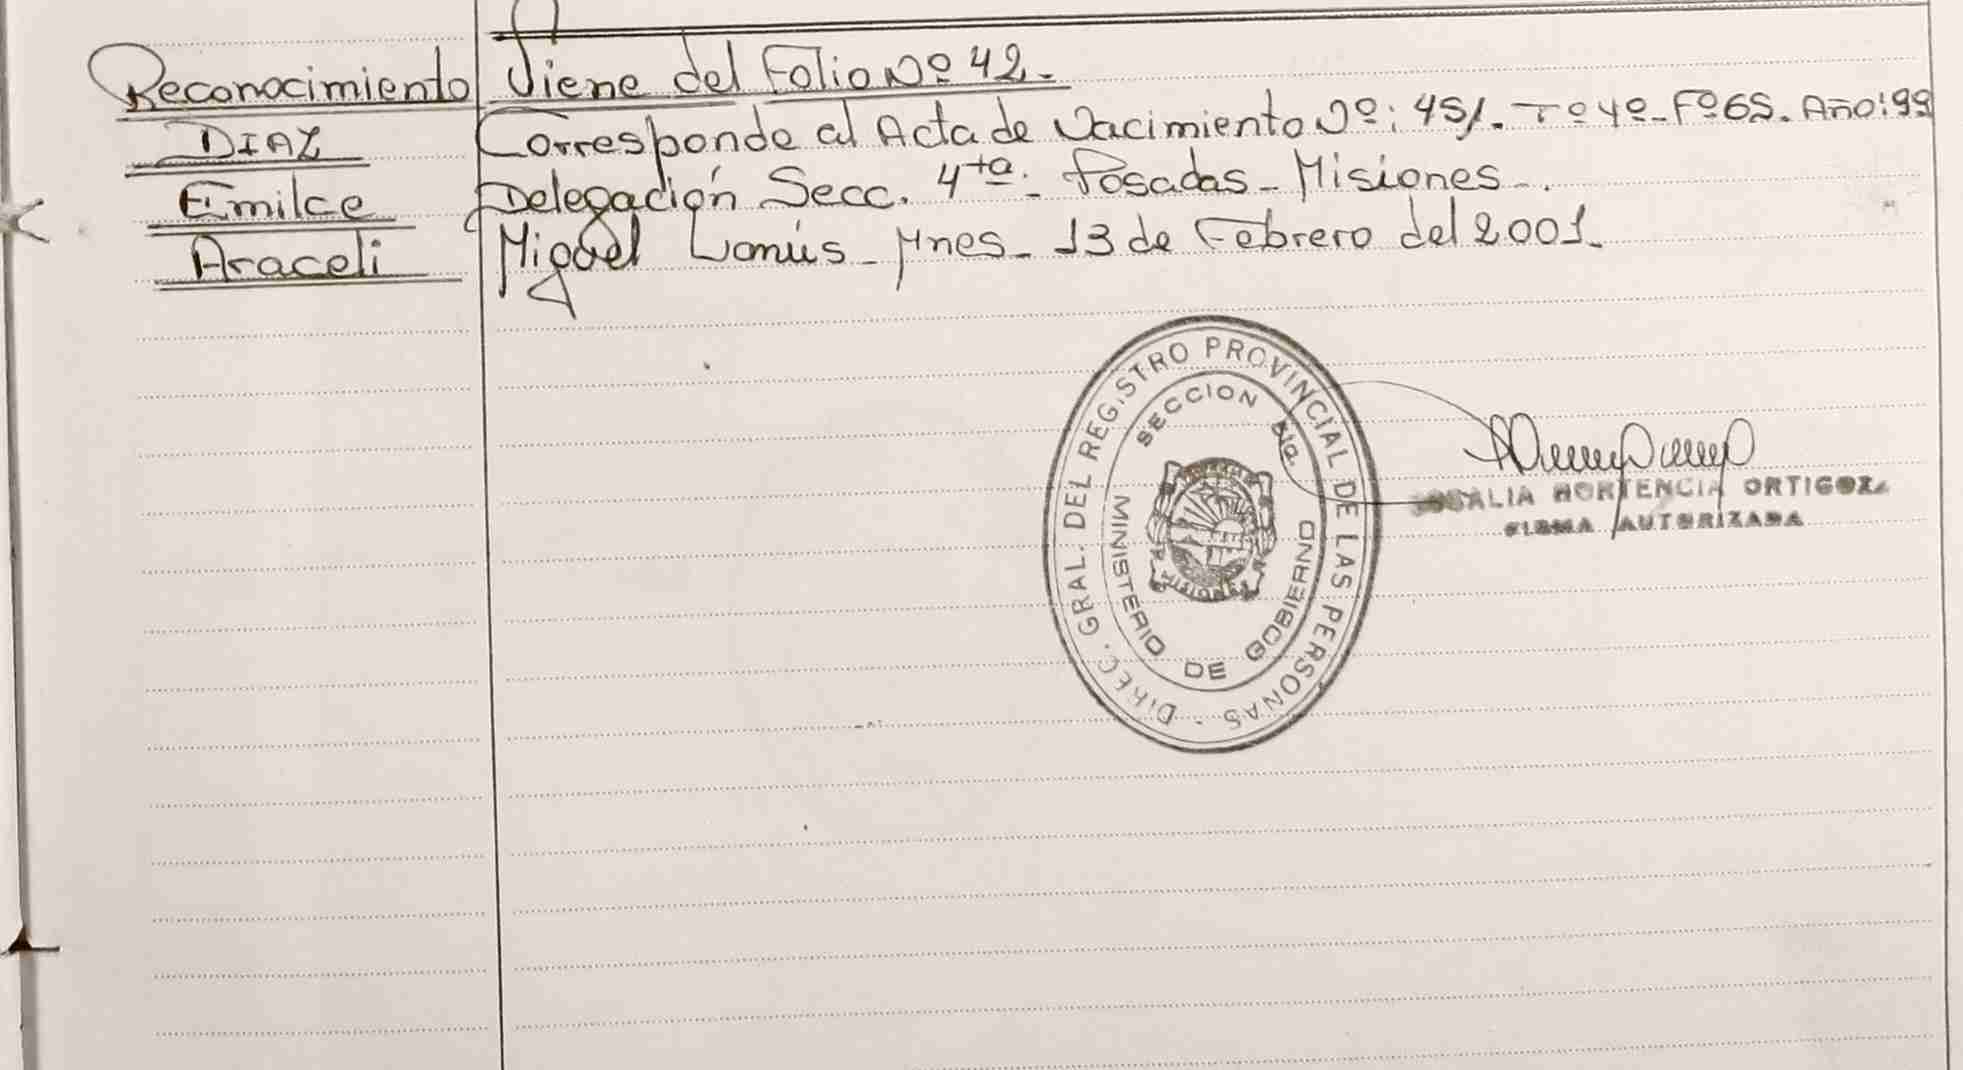 Reconocimiento
DIAZ
Emilce
Araceli
Viene del Folio Nº 42.-
Corresponde al Acta de Nacimiento Nº: 451. Tº 4º- Fº 65. Año: 99
Delegación Secc. 4ta.- Posadas- Misiones-.
Miguel Lanús- Mnes- 13 de Febrero del 2001.-
DIREC. GRAL. DEL REGISTRO PROVINCIAL DE LAS PERSONAS
SECCION
MINISTERIO DE GOBIERNO
ROSALIA HORTENCIA ORTIGOZA
FIRMA AUTORIZADA